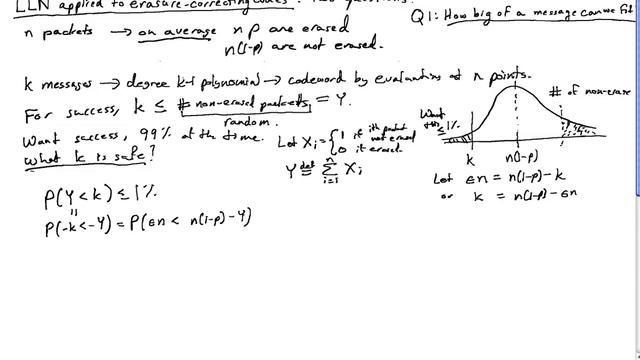 LLN applied to erasure-correcting codes: Two questions.
Q1: How big of a message can we fit
n packets → on average np are erased
n(1-p) are not erased.
k messages → degree k-1 polynomial → codeword by evaluating at n points.
For success, k ≤ # non-erased packets = Y.
random.
Want success, 99% of the time.
What k is safe?
Let Xi = { 1 if ith packet not erased
0 if erased.
Y def= Σ i=1 n Xi
# of non-erase
Want this ≤ 1%.
k
n(1-p)
Let εn = n(1-p) - k
or k = n(1-p) - εn
P(Y < k) ≤ 1%
"
P(-k < -Y) = P(εn < n(1-p) - Y)